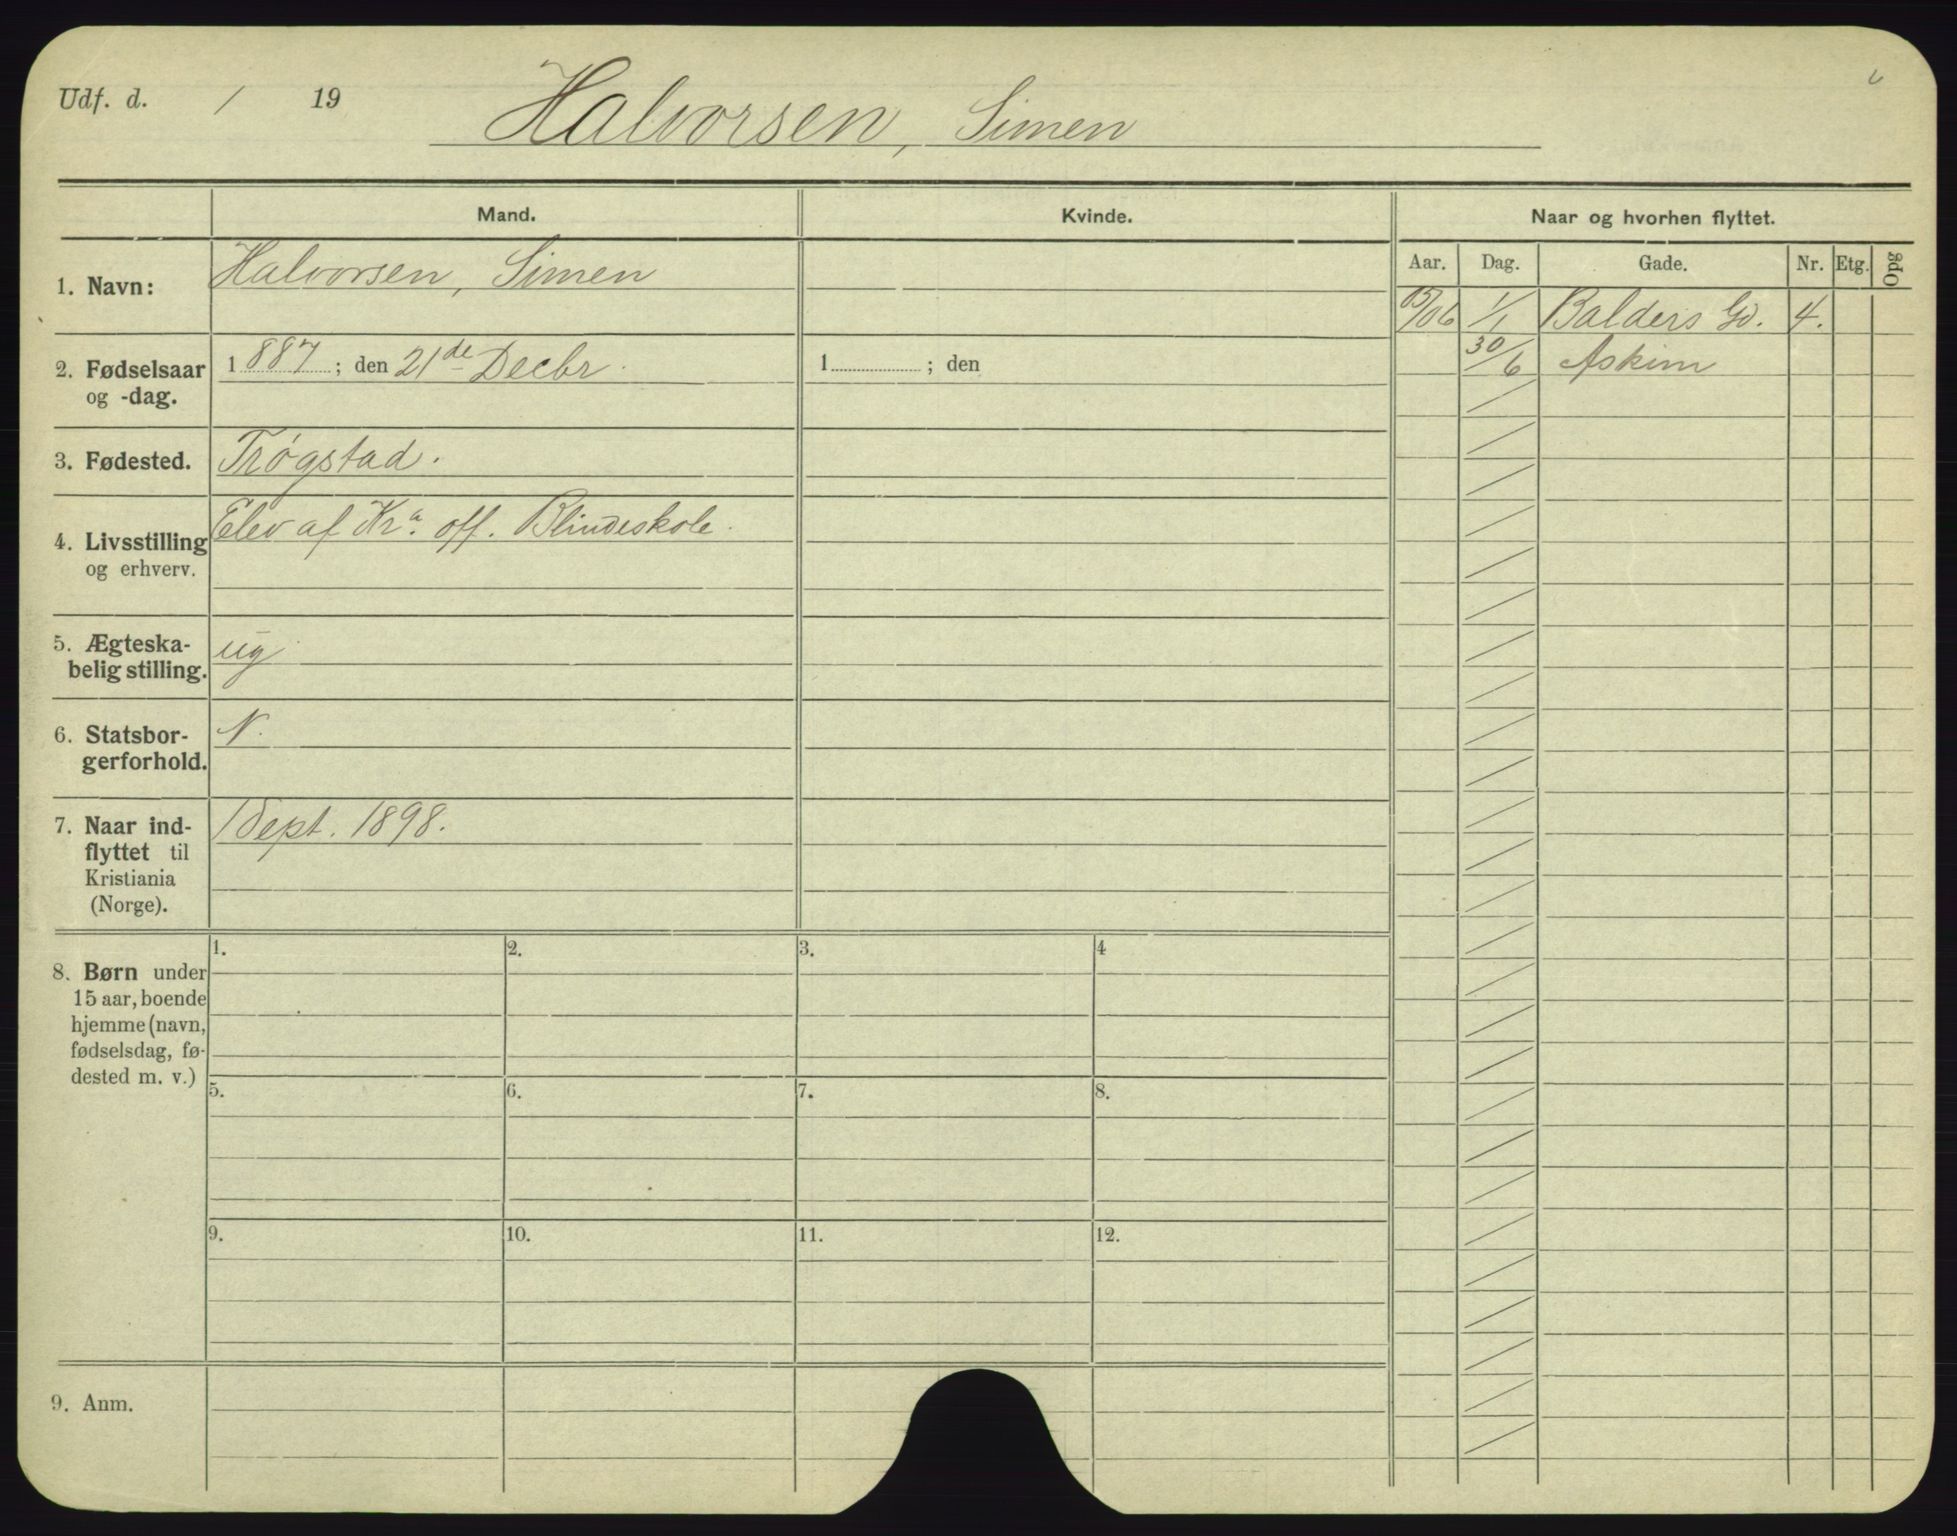 Udf. d. / 19
Halvorsen, Simen
Mand.
Kvinde.
Naar og hvorhen flyttet.
Aar. Dag. Gade. Nr. Etg. Opg
05/06 1/1 Balders Gd. 4.
30/6 Askim
1. Navn: Halvorsen, Simen
2. Fødselsaar og -dag. 1887; den 21de Decbr. 1 ; den
3. Fødested. Trøgstad.
4. Livsstilling og erhverv. Elev af Kra. off. Blindeskole.
5. Ægteska-
belig stilling. ug
6. Statsbor-
gerforhold. N.
7. Naar ind-
flyttet til
Kristiania
(Norge). 1 Sept. 1898.
8. Børn under
15 aar, boende
hjemme (navn,
fødselsdag, fø-
dested m. v.)
1. 2. 3. 4
5. 6. 7. 8.
9. 10. 11. 12.
9. Anm.